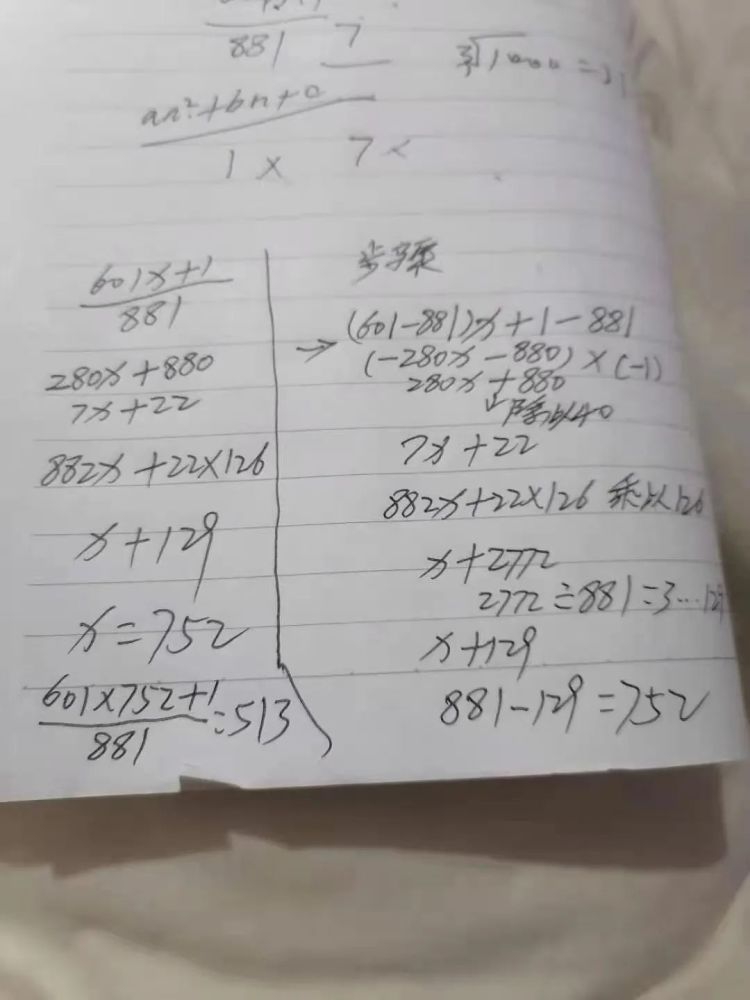 881 7
∛1000 =
an²+bn+0
1 x 7 x
601x+1
881
280x+880
7x+22
882x+22×126
x+129
x=752
601×752+1
881
=513
步骤
→ (601-881)x+1-881
(-280x-880)×(-1)
280x+880
↓除以40
7x+22
882x+22×126 乘以126
x+2772
2772÷881=3…129
x+129
881-129=752